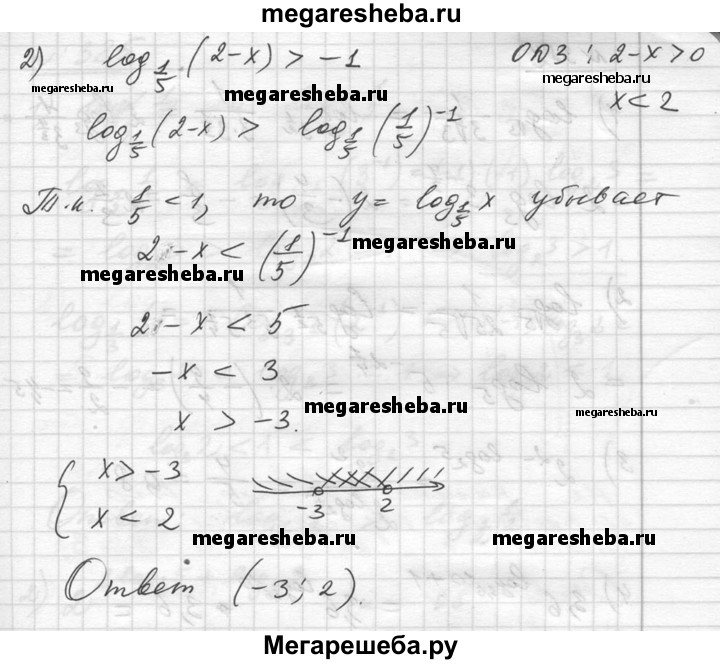 megaresheba.ru
2) log_{1/5} (2-x) > -1   ОДЗ: 2-x>0
megaresheba.ru megaresheba.ru megaresheba.ru
x<2
log_{1/5} (2-x) > log_{1/5} (1/5)^{-1}
Т.к. 1/5 < 1, то y = log_{1/5} x убывает
2-x < (1/5)^{-1} megaresheba.ru
megaresheba.ru
2-x < 5
-x < 3
megaresheba.ru megaresheba.ru
x > -3.
{ x > -3
x < 2   -3 2
megaresheba.ru megaresheba.ru
Ответ (-3; 2).
Мегарешеба.ру